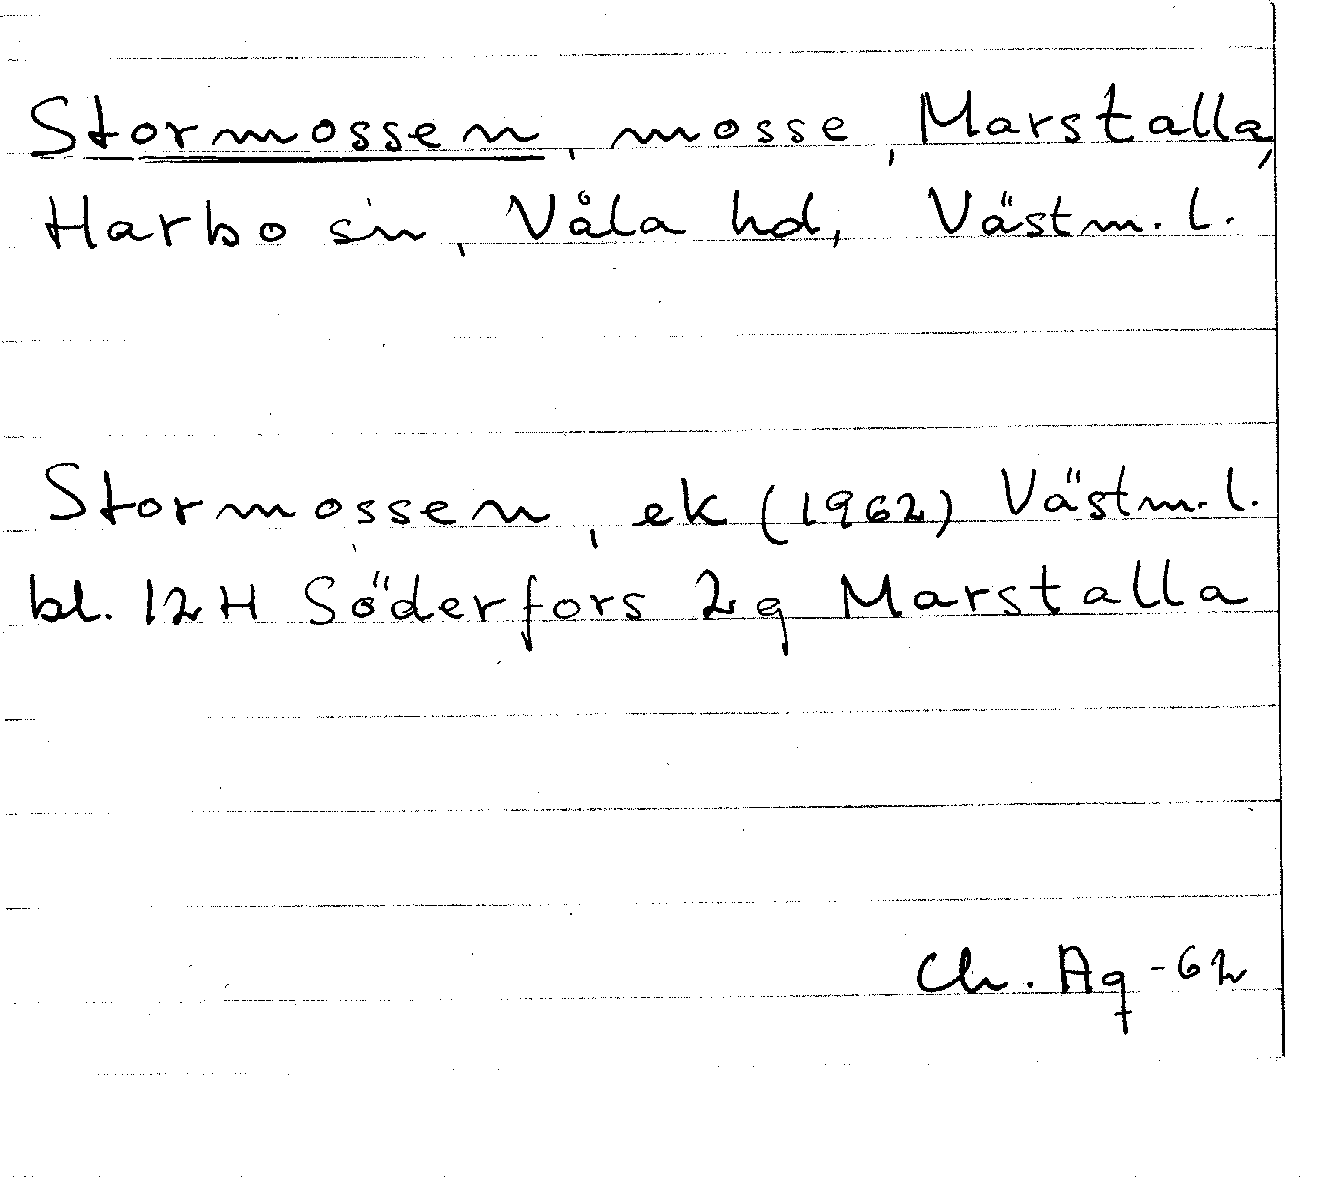 Stormossen, mosse, Marstalla,
Harbo sn, Våla hd, Västm. l.
Stormossen, ek (1962) Västm. l.
bl. 12H Söderfors 2g Marstalla
Ch. Ag -62